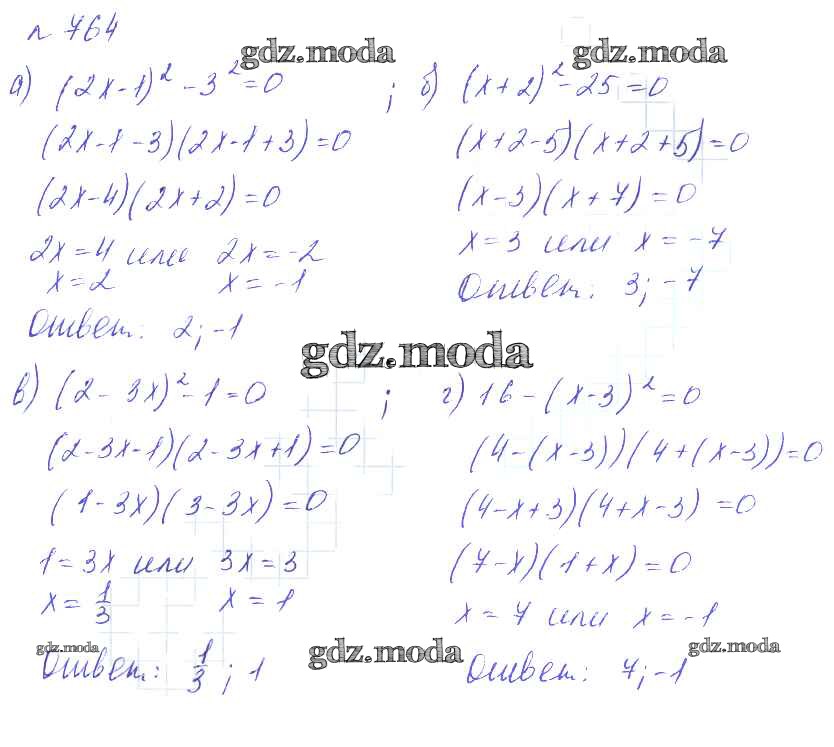 n 764
gdz.moda
gdz.moda
а) (2x-1)² - 3² = 0 ;
(2x-1-3)(2x-1+3)=0
(2x-4)(2x+2)=0
2x=4 или 2x=-2
x=2 x=-1
Ответ: 2; -1
б) (x+2)² - 25 = 0
(x+2-5)(x+2+5)=0
(x-3)(x+7)=0
x=3 или x=-7
Ответ: 3; -7
gdz.moda
в) (2-3x)² - 1 = 0 ;
(2-3x-1)(2-3x+1)=0
(1-3x)(3-3x)=0
1=3x или 3x=3
x=1/3 x=1
gdz.moda
Ответ: 1/3 ; 1
gdz.moda
г) 16-(x-3)²=0
(4-(x-3))(4+(x-3))=0
(4-x+3)(4+x-3)=0
(7-x)(1+x)=0
x=7 или x=-1
gdz.moda
Ответ: 7; -1